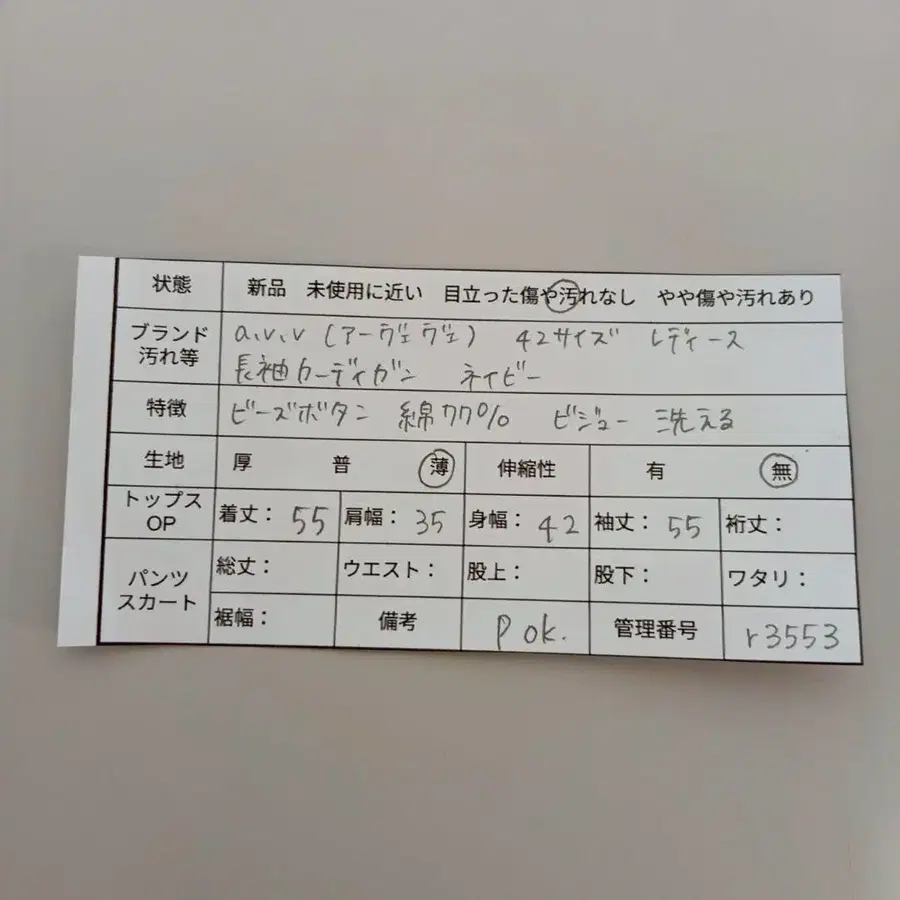 状態 新品 未使用に近い 目立った傷や汚れなし やや傷や汚れあり
ブランド 汚れ等 a.v.v (アーヴェヴェ) 42サイズ レディース
長袖カーディガン ネイビー
特徴 ビーズボタン 綿77% ビジュー 洗える
生地 厚 普 薄 伸縮性 有 無
トップス OP 着丈: 55 肩幅: 35 身幅: 42 袖丈: 55 裄丈:
パンツ スカート 総丈: ウエスト: 股上: 股下: ワタリ:
裾幅: 備考 P ok. 管理番号 r3553